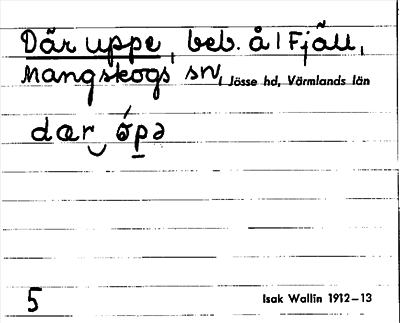 Där uppe, beb. å l Fjäll,
Mangskogs sn, Jösse hd, Värmlands län
dær ópə
5 Isak Wallin 1912–13